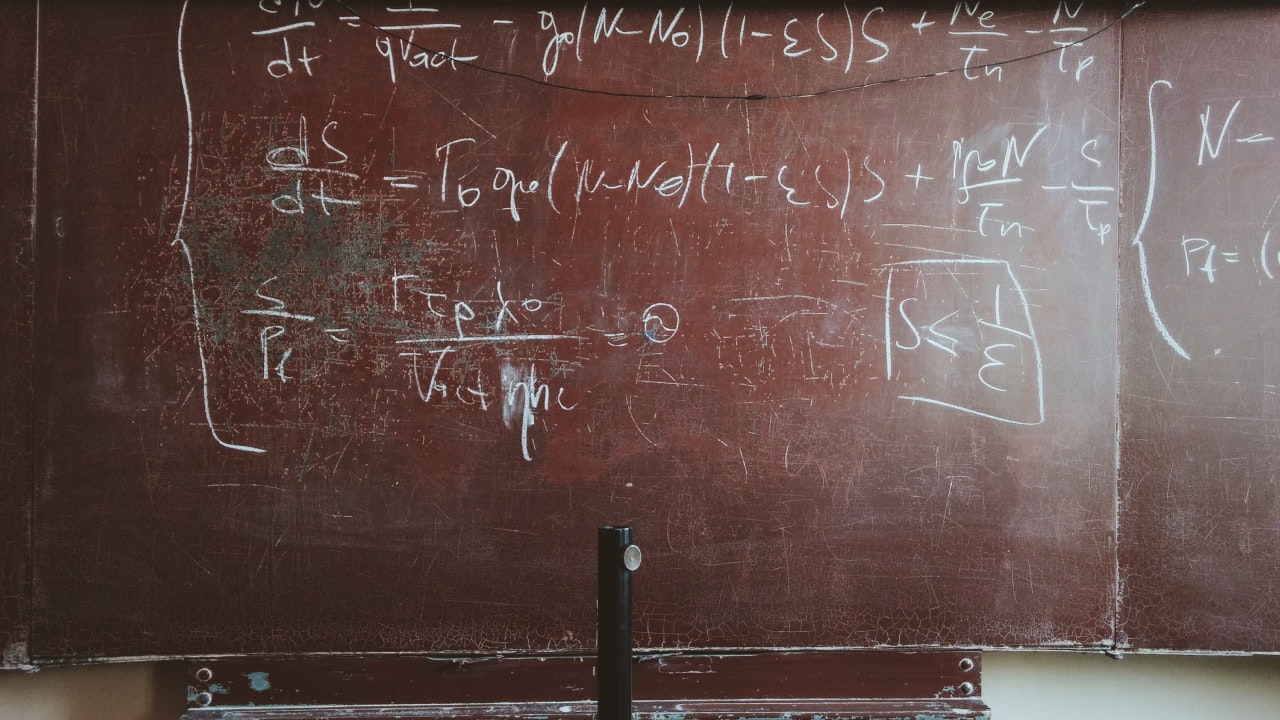 dN/dt = I/qVact - g₀(N-N₀)(1-εS)S + Ne/τn - N/τp
dS/dt = Γ₀g₀(N-N₀)(1-εS)S + Γβ₀N/τn - S/τp
S/Pf = Γτpλ₀/Vact ηhc = 
S ≤ 1/ε
N -
Pf = (